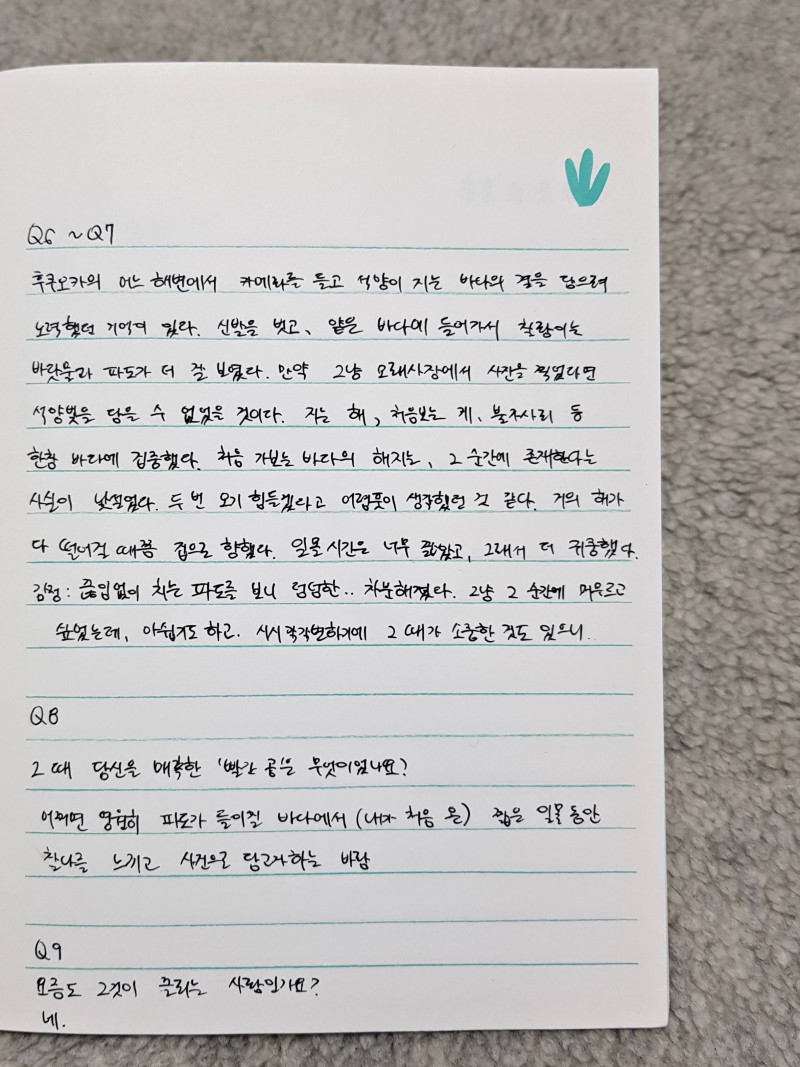 Q6 ~ Q7
후쿠오카의 어느 해변에서 카메라를 들고 석양이 지는 바다의 결을 담으려
노력했던 기억이 있다. 신발을 벗고, 얕은 바다에 들어가서 찰랑이는
바닷물과 파도가 더 잘 보였다. 만약 그냥 모래사장에서 사진을 찍었다면
석양빛을 담을 수 없었을 것이다. 지는 해, 처음보는 게, 불가사리 등
한참 바다에 집중했다. 처음 가보는 바다의 해지는, 그 순간에 존재한다는
사실이 낯설었다. 두 번 오기 힘들겠다고 어렴풋이 생각했던 것 같다. 거의 해가
다 떨어질 때쯤 집으로 향했다. 일몰 시간은 너무 짧았고, 그래서 더 귀중했다.
감정: 끊임없이 치는 파도를 보니 덤덤한.. 차분해졌다. 그냥 그 순간에 머무르고
싶었는데, 아쉽기도 하고. 시시각각변하기에 그 때가 소중한 것도 있으니..
Q8
그 때 당신을 매혹한 '빨간 공'은 무엇이었나요?
어쩌면 영원히 파도가 들이칠 바다에서 (내가 처음 온) 짧은 일몰동안
찰나를 느끼고 사진으로 담고자하는 바람
Q9
요즘도 그것이 끌리는 사람인가요?
네.